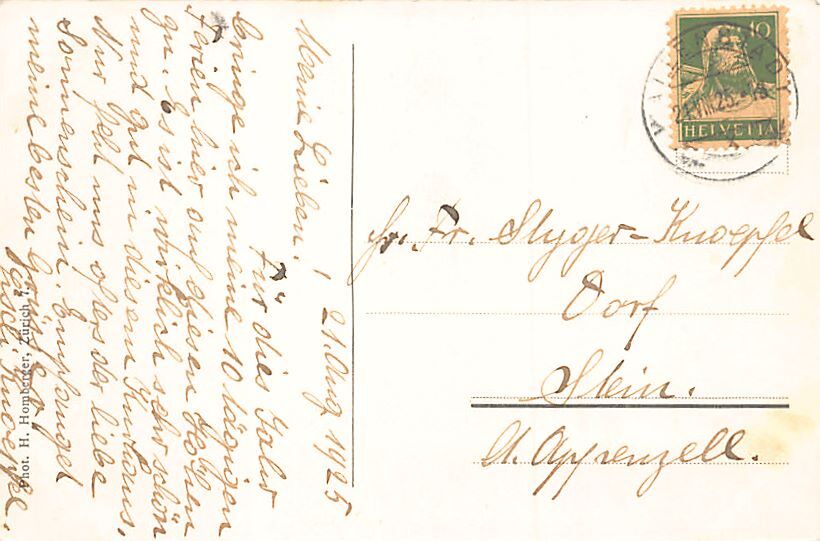 Meine Lieben! 21. Aug. 1925
Für dies Jahr
bringe ich meine 10 tägigen
Ferien hier auf diesen Höhen
zu. Es ist wirklich sehr schön
und gut in diesem Kurhaus,
Nur fehlt uns öfters der liebe
Sonnenschein. Empfanget
meine besten Grüße v.
Knoepfel.
Phot. H. Homberger, Zürich 7.
10
HELVETIA
21.VIII.25.
Fr. Stygger-Knoepfel
Dorf
Stein.
Kt. Appenzell.